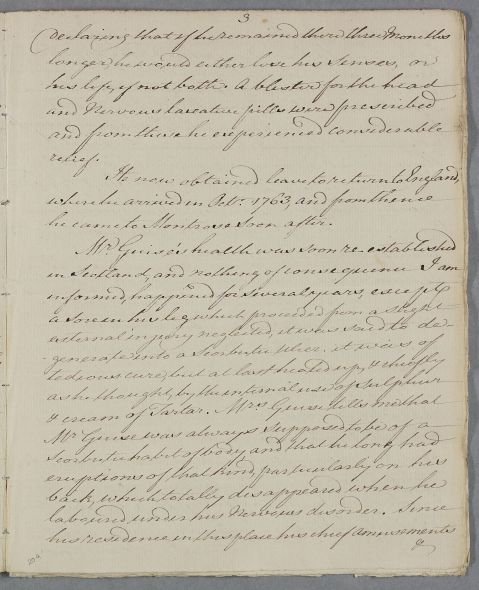 3
declaring that if he remained there three Months
longer, he would either lose his Senses, or
his life, if not both. A blister for the head
and Nervous laxative pills were prescribed
and from these he experienced considerable
relief.
He now obtained leave to return to England,
where he arrived in Octr. 1763, and from thence
he came to Montrose soon after.
Mr. Guise's health was soon re-established
in Scotland, and nothing of consequence I am
informed, happened for several years, except
a sore in his leg which proceeded from a slight
external injury neglected, it was said to de-
generate into a Scorbutic ulcer. it was of
tedious cure, but at last healed up, & chiefly
as he thought, by the internal use of Sulphur
& cream of Tartar. Mrs Guise tells me that
Mr. Guise was always supposed to be of a
Scorbutic habit of body, and that he long had
eruptions of that kind, particularly on his
back, which totally disappeared when he
laboured under his Nervous disorder. Since
his residence in this place his chief amusements